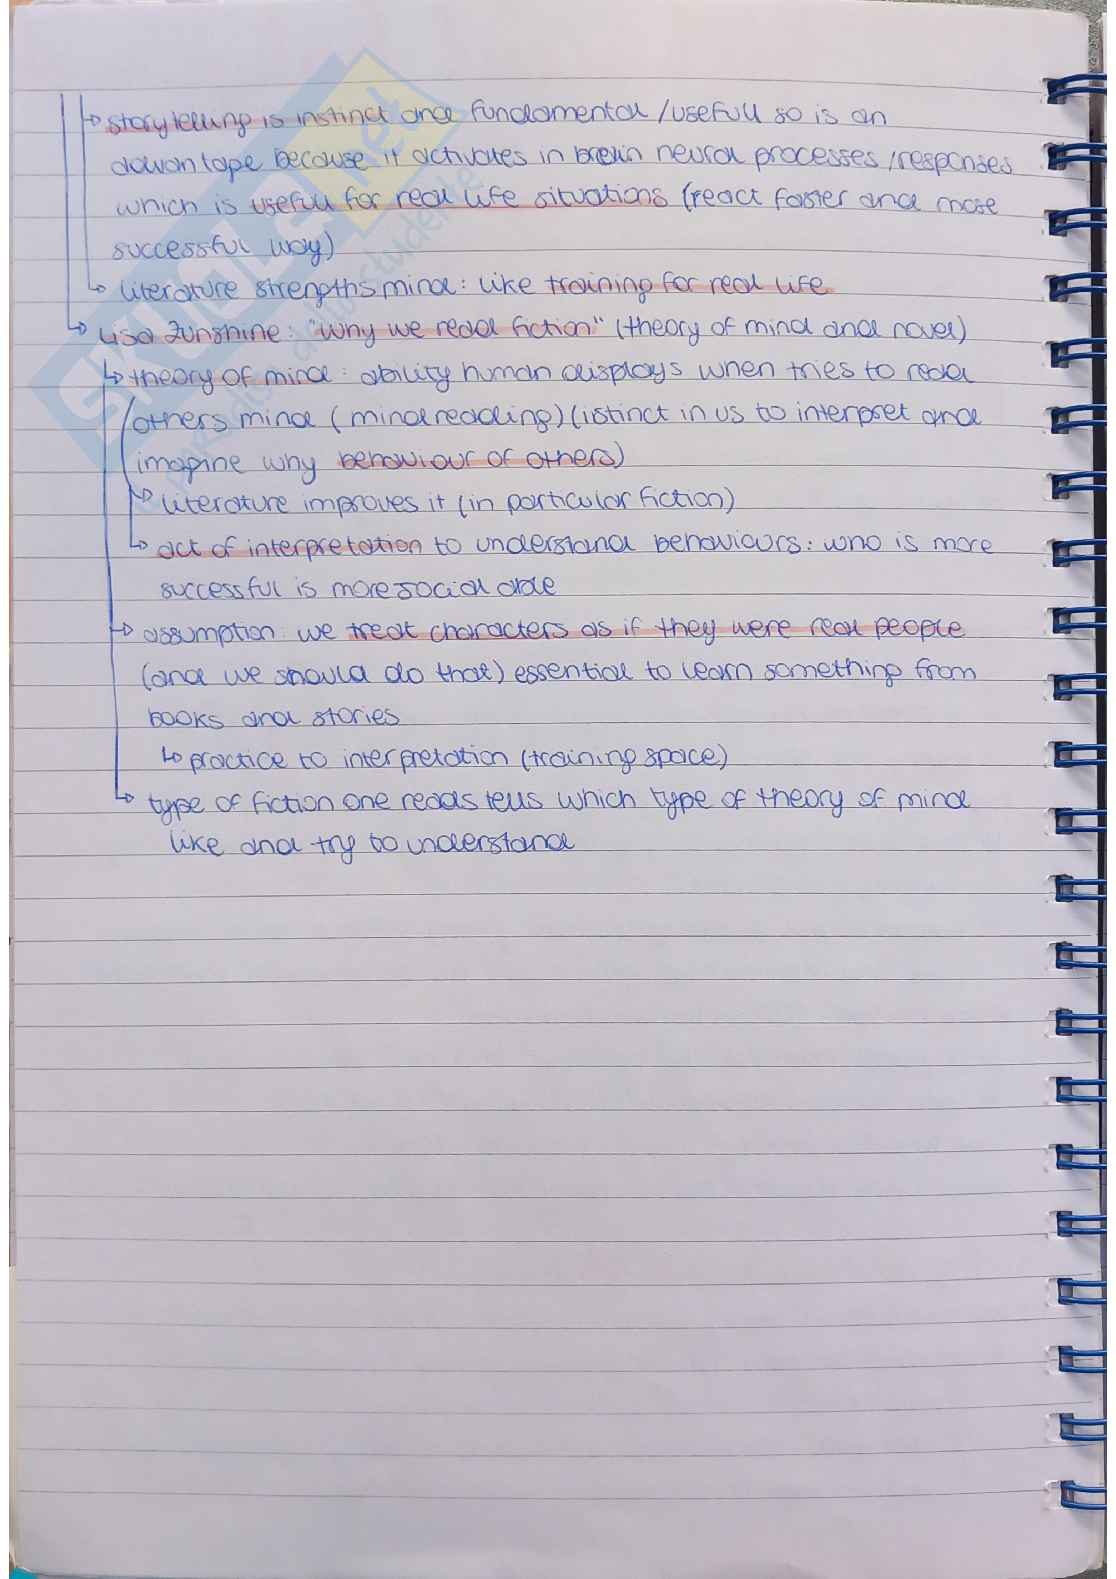 ↳ storytelling is instinct and fundamental /usefull so is an
advantage because it activates in brain neural processes /responses
which is usefull for real life situations (react faster and more
successful way)
↳ literature strengths mind: like training for real life
↳ Lisa Zunshine: "Why we read fiction" (theory of mind and novel)
↳ theory of mind: ability human displays when tries to read
others mind (mindreading) (istinct in us to interpret and
imagine why behaviour of others)
↳ literature improves it (in particular fiction)
↳ act of interpretation to understand behaviours: who is more
successful is more social able
↳ assumption: we treat characters as if they were real people
(and we should do that) essential to learn something from
books and stories
↳ practice to interpretation (training space)
↳ type of fiction one reads tells which type of theory of mind
like and try to understand
SKUOLA.net